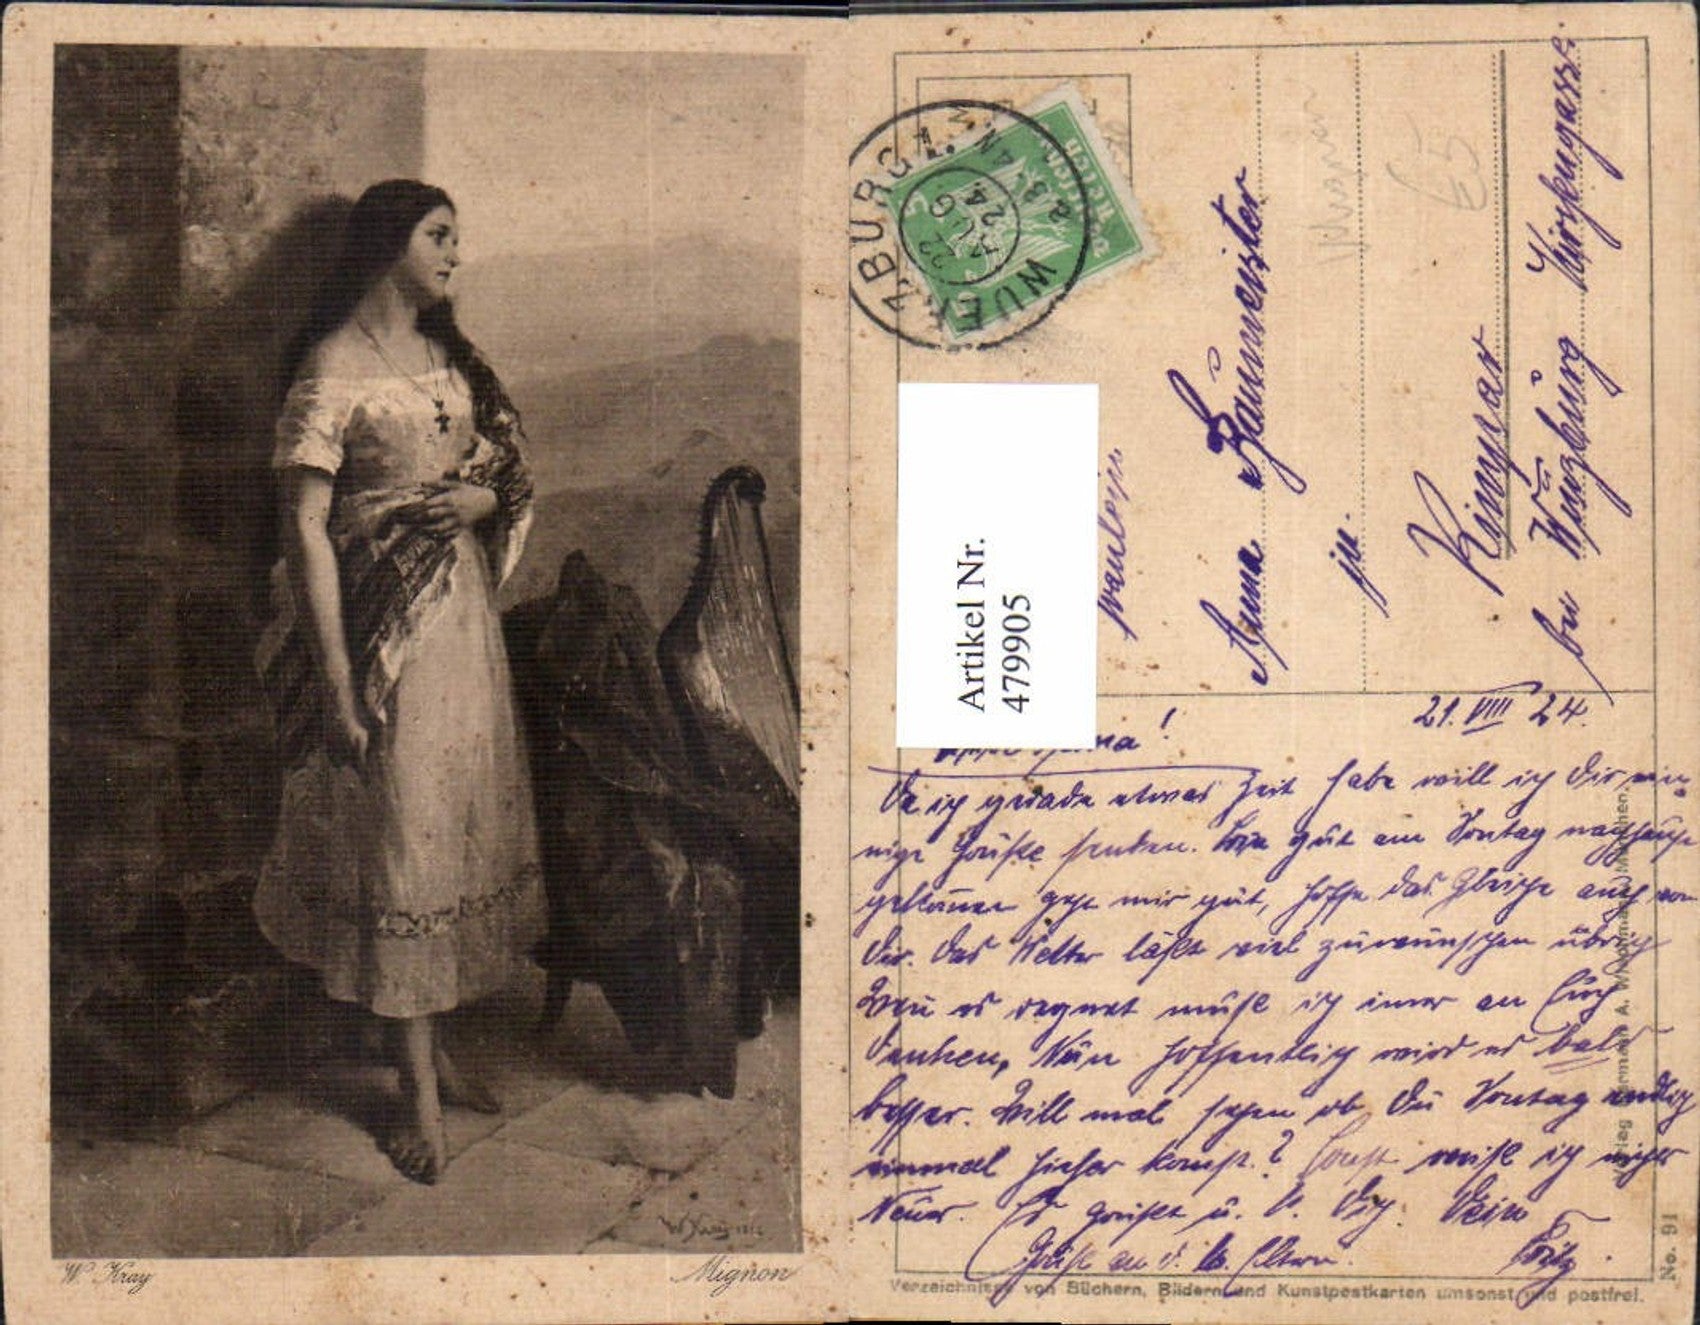 W Kray 1912
W. Kray
Mignon
WUERZBURG 1.
22 AUG 24
Deutsches Reich
5
Artikel Nr.
479905
Fräulein
Anna Baumeister
in
Rimpar
bei Würzburg Kirchgasse
E5
21. VIII 24.
Liebe Anna!
Da ich gerade etwas Zeit habe will ich Dir ei-
nige Grüße senden. Bin gut am Sontag nachhause
gekomen geht mir gut, hoffe das Gleiche auch von
Dir. Das Wetter läßt viel zuwünschen übrig
Wen es regnet muß ich imer an Euch
denken, Nun hoffentlich wird es bald
besser. Will mal sehen ob Du Sontag endlich
einmal hieher komst? Sonst weiß ich nichts
Neues. Es grüßt u. k. Dich. Dein
Grüße an d. lb. Eltern. Fritz.
Verlag Hermann A. Wiechmann, München.
No. 91
Verzeichnisse von Büchern, Bildern und Kunstpostkarten umsonst und postfrei.